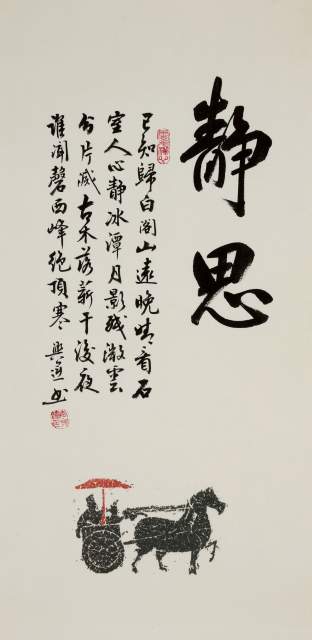 静思
已知歸白阁山遠晚晴看石
室人心静冰潭月影残微雲
分片滅古木落薪干後夜
誰闻磬西峰绝頂寒 興书